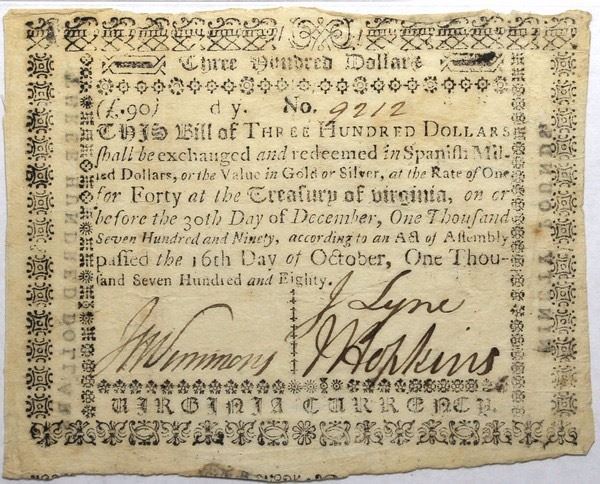 Three Hundred Dollars
(£.90) d y. No. 9212
THIS Bill of THREE HUNDRED DOLLARS
shall be exchanged and redeemed in Spanish Mil-
led Dollars, or the Value in Gold or Silver, at the Rate of One
for Forty at the Treasury of Virginia, on or
before the 30th Day of December, One Thousand
Seven Hundred and Ninety, according to an Act of Assembly
passed the 16th Day of October, One Thou-
sand Seven Hundred and Eighty.
J Lyne
Simmons J Hopkins
VIRGINIA CURRENCY.
THREE HUNDRED DOLLAR